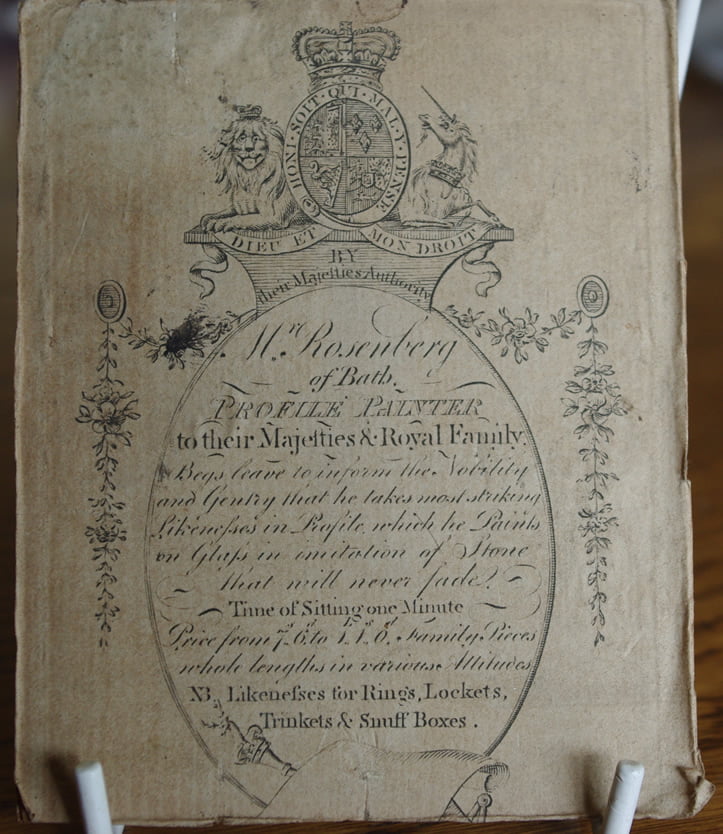 HONI · SOIT · QUI · MAL · Y · PENSE
DIEU ET MON DROIT
BY
their Majesties Authority
Mr. Rosenberg
of Bath,
PROFILE PAINTER
to their Majesties & Royal Family.
Begs leave to inform the Nobility
and Gentry that he takes most striking
Likenesses in Profile, which he Paints
on Glass in imitation of Stone
that will never fade.
Time of Sitting one Minute
Price from 7s. 6d. to £1. 1s. 0d. Family Pieces
whole lengths in various Attitudes
NB. Likenesses for Rings, Lockets,
Trinkets & Snuff Boxes.